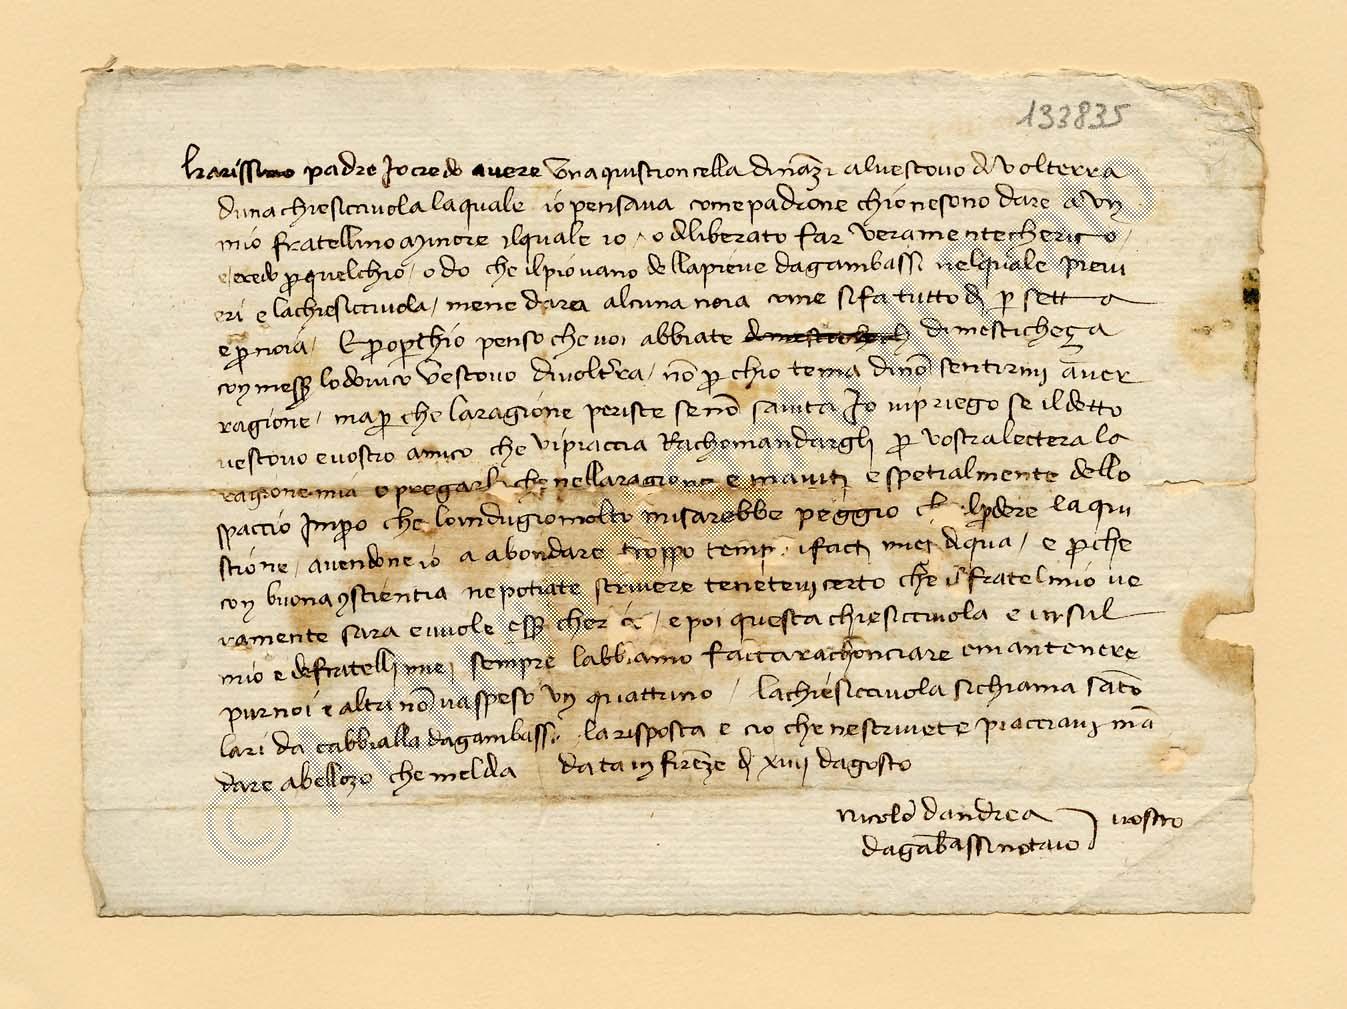 133835
karissimo padre Io credo avere una quistioncella dinazi al vescovo di volterra
duna chiesicciuola la quale io pensava come padrone chio ne sono dare a un
mio fratellino minore il quale io o diliberato far veramente cherico
e credo p quelchio odo che il piovano della pieve da gambassi nel quale pievi
eri e la chiesicciuola mene dara alcuna noia come si fa tutto di p setta
e p noia E p penso che voi abbiate dimestichega
con mess lodovico vescovo di voltra no p chio tema di no sentirmi aver
ragione ma p che la ragione perisce se no saiuta Io vi priego se il detto
vescovo e vostro amico che vi piaccia Rachomandargli p vostra lectera la
ragione mia e pregarlo che nella ragione e maiuti e spetialmente dello
spaccio Impo che lo indugio molto mi sarebbe peggio che l pdere la qui
stione avendone io a abondare troppo temp i facti miei di qua e p che
con buona conscientia ne potiate scrivere tenetevi certo che il fratel mio ve
ramente sara e vuole ess cher e poi questa chiesicciuola e iursal
mio e de fratelli miei sempre labbiamo facta rachonciare e mantenere
pur noi e altri no va speso un quattrino la chiesicciuola si chiama sato
lari da cabbialla da gambassi la risposta e cio che ne scrivete piacciavi ma
dare a bellozo che mel dia data in firenze di xviij dagosto
nicolo dandrea vostro
da gabassi notaio